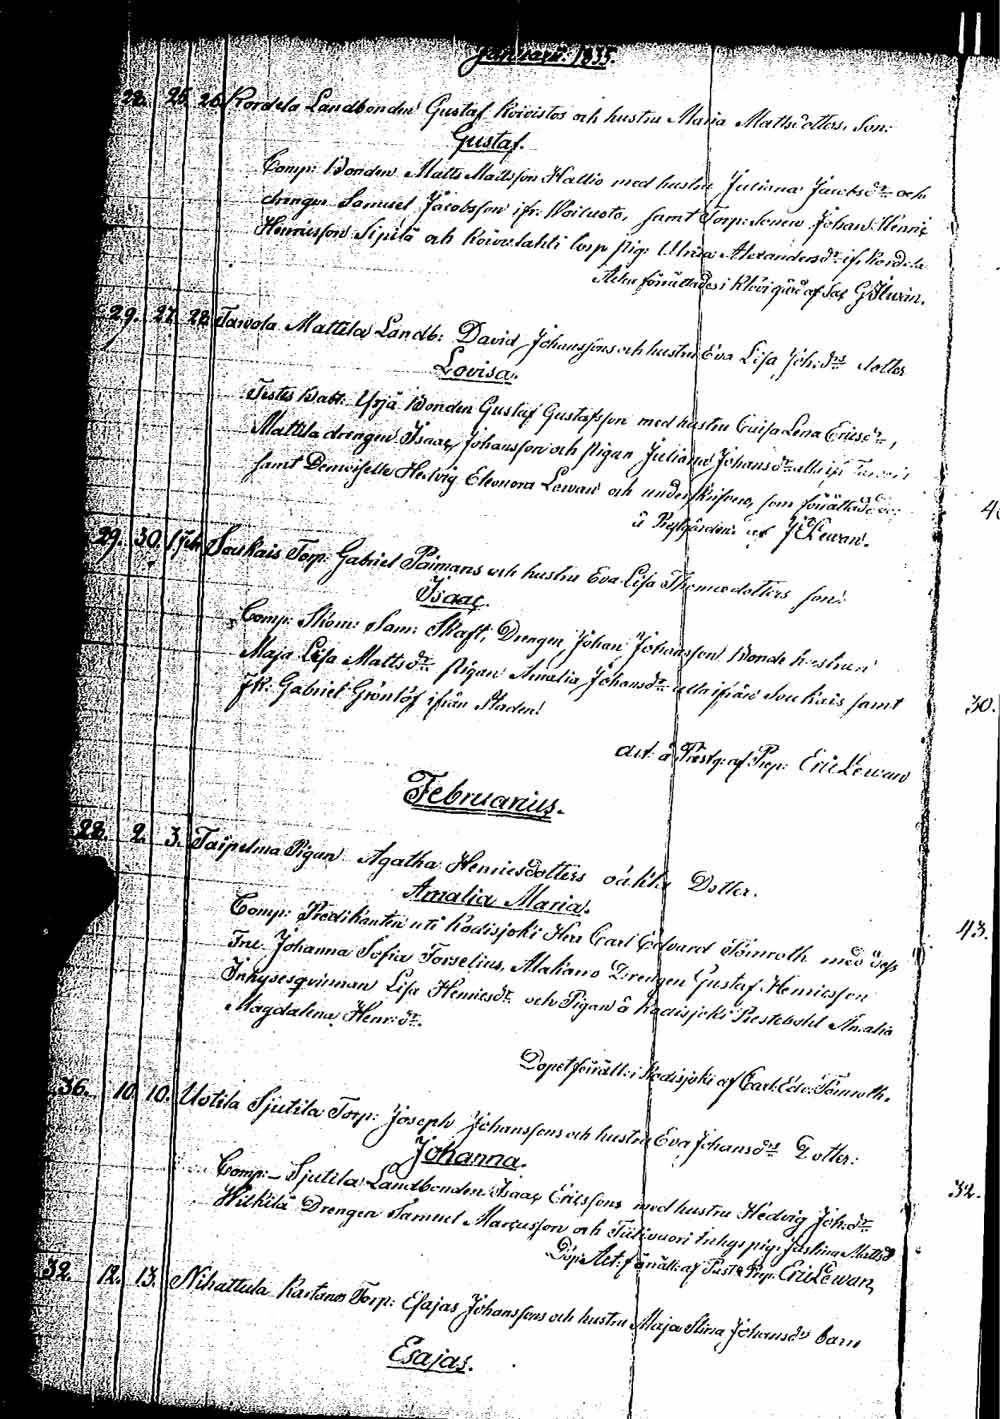 11
Januarii. 1835.
28. 25. 26. Kordela Landbonden Gustaf Koivistos och hustru Maria Mattsdotters, Son:
Gustaf.
Comp: Bonden Matts Mattsson Hallio med hustru Juliana Jacobsdr och
drengen Samuel Jacobsson ifr. Woiluoto, samt Torp: Sonen Johan Henric
Henricsson Sipilä och Koivulahti Torp pig. Ulrica Alexandersdr if. Kordela
Acten förrättades i af Sac G
29. 27. 28. Tawola Mattila Landb: David Johanssons och hustru Eva Lisa Joh: drs dotter
Lovisa.
Testes Yrjä Bonden Gustaf Gustafsson med hustru Lena Ericsdr,
Mattila drengen Isaac Johansson och Pigan Juliana Johansdr alla if
samt Demoiselle Hedvig Eleonora Lewan och undersk som förrättade
40
å Prestgården af Lewan.
29. 30. 1 feb. Soukais Torp: Gabriel Päimans och hustru Eva Lisa Thomædotters son:
Isaac.
Comp: Skom: Sam: Skaft, Drengen Johan Johansson Bonde hustrun
Maja Lisa Mattsdr Pigan Amalia Johansdr alla ifrån Soukais samt
30.
JK: Gabriel Grönlöf ifrån Staden.
Act: å Prestg: af Prep: Eric Lewan
Februarius.
22. 2. 3. Taipelma Pigan Agatha Henricsdotters oäkta Dotter.
Amalia Maria.
43.
Comp: Predikanten uti Kodisjoki Herr Carl Edvard Tömroth med dess
Fru Johanna Sofia Forselius, Drengen Gustaf Henricsson
Inhysesqvinnan Lisa Henricsdr och Pigan å Kodisjoki Prestebohl Amalia
Magdalena Henr: dr.
Dopet förrätt: i Kodisjoki af Carl Edv: Tömroth.
36. 10. 10. Uotila Sjutila Torp: Joseph Johanssons och hustru Eva Johansdrs Dotter:
Johanna.
32.
Comp: Sjutila Landbonden Isaac Ericssons med hustru Hedvig Joh: dr
Hitkilä Drengen Samuel Marcusson och Tulivuori Inhys pig. Justina Mattsd
Döp. Act: förrätt: af Past & Prep: Eric Lewan,
32. 12. 13. Nihattula Kartanos Torp: Esajas Johanssons och hustru Maja Stina Johansdrs barn
Esajas.